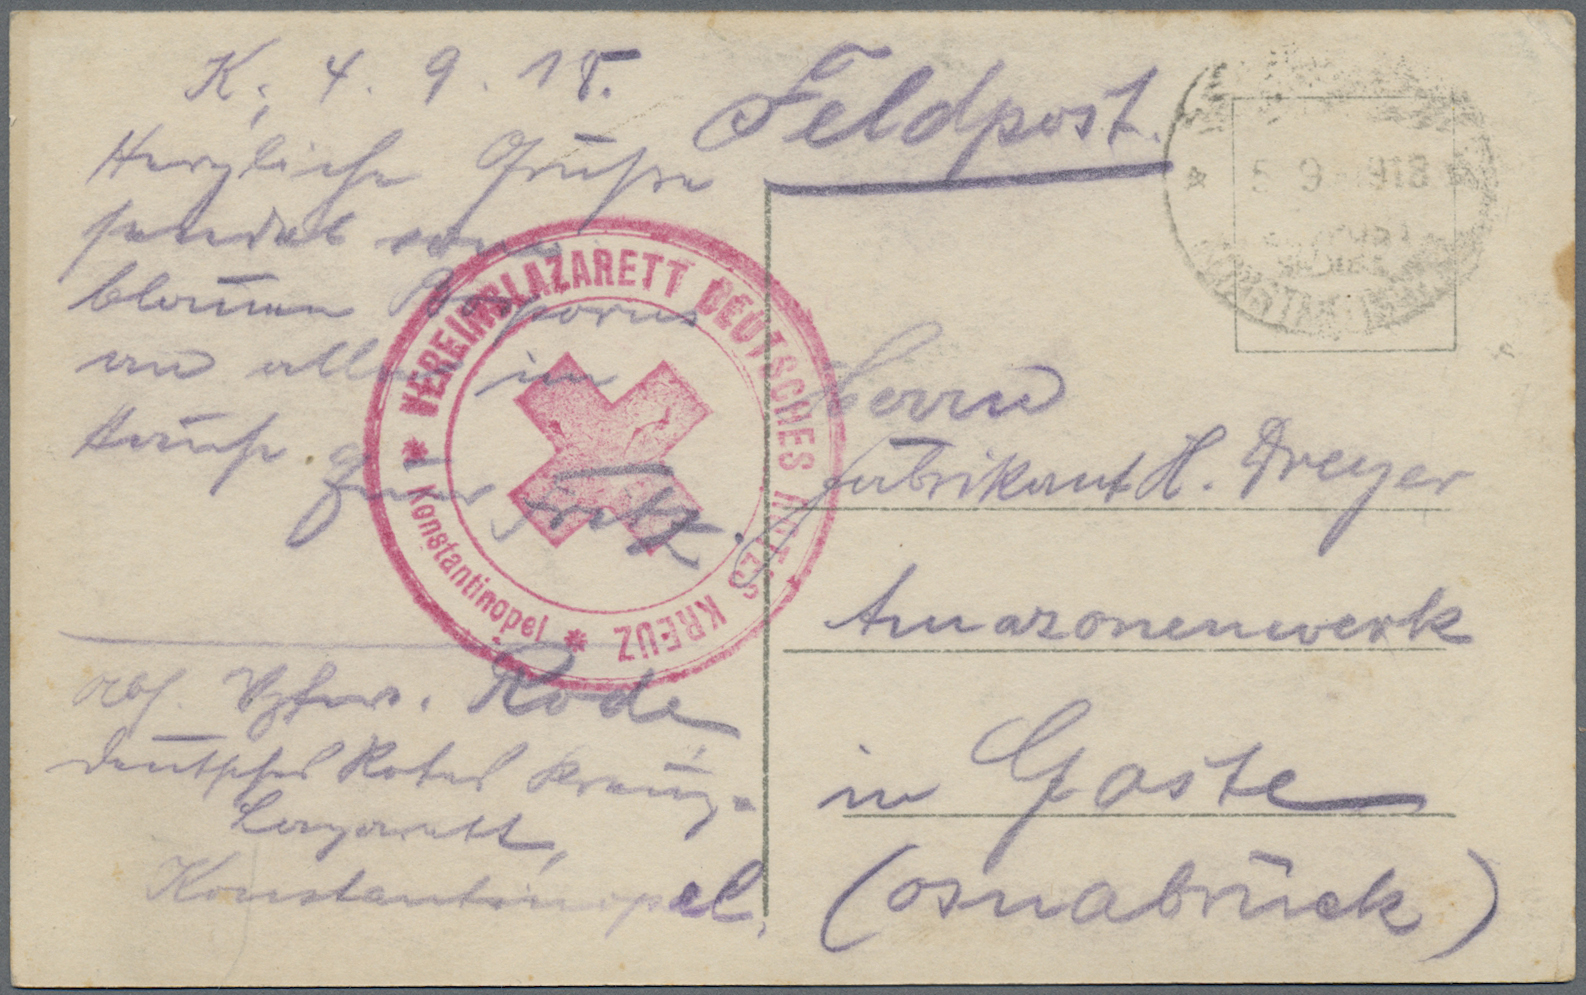 K, 4. 9. 18.
Feldpost.
Herzliche Grüße
sendet vom
blauen Bosporus
an alle im
Hause
Fritz.
VEREINSLAZARETT DEUTSCHES ROTES KREUZ
* Konstantinopel *
Abs. Vzfw. Rode
Deutsches Rotes Kreuz-
Lazarett,
Konstantinopel.
* 5 9 918 *
Herrn
Fabrikant H. Dreyer
Amazonenwerk
in Gaste
(Osnabrück)